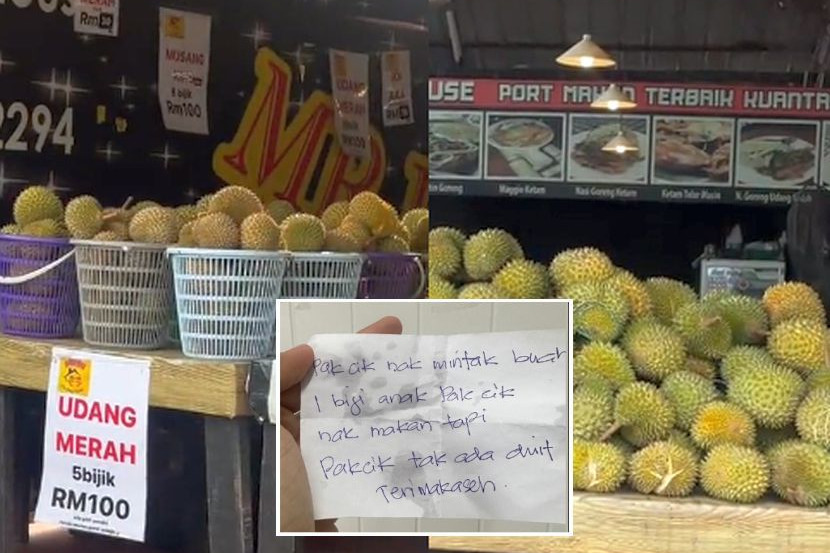 Rm30
MUSANG
6 bijik
Rm100
UDANG
MERAH
2294
MR
USE PORT MAKAN TERBAIK KUANTA
Maggie Ketam
Nasi Goreng Ketam
Ketam Telur Masin
N. Goreng Udang
UDANG
MERAH
5bijik
RM100
Pak cik nak mintak buah
1 biji anak Pak cik
nak makan tapi
Pakcik tak ada duit
Terimakaseh.